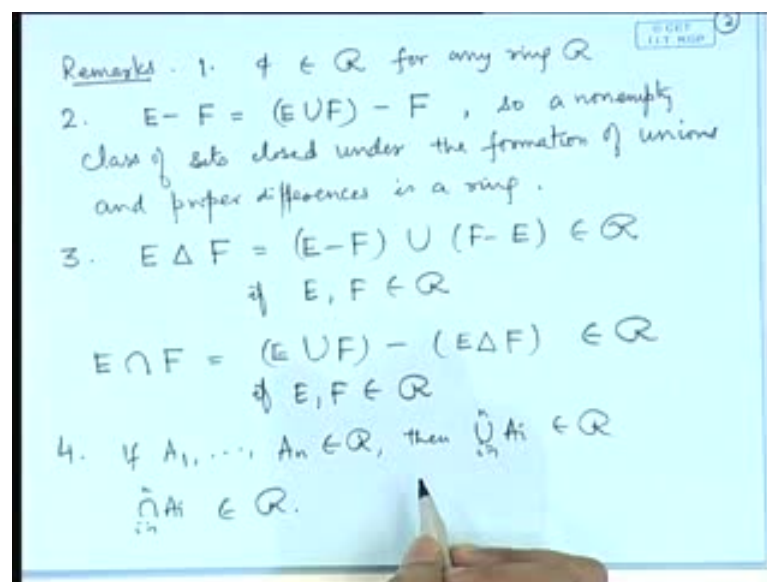 © CET
I.I.T. KGP
2
Remarks. 1. ϕ ∈ R for any ring R
2. E - F = (E ∪ F) - F , so a nonempty
class of sets closed under the formation of unions
and proper differences is a ring.
3. E Δ F = (E-F) ∪ (F-E) ∈ R
if E, F ∈ R
E ∩ F = (E ∪ F) - (E Δ F) ∈ R
if E, F ∈ R
4. If A₁, ..., Aₙ ∈ R, then ⋃ⁿᵢ₌₁ Ai ∈ R
⋂ⁿᵢ₌₁ Ai ∈ R.